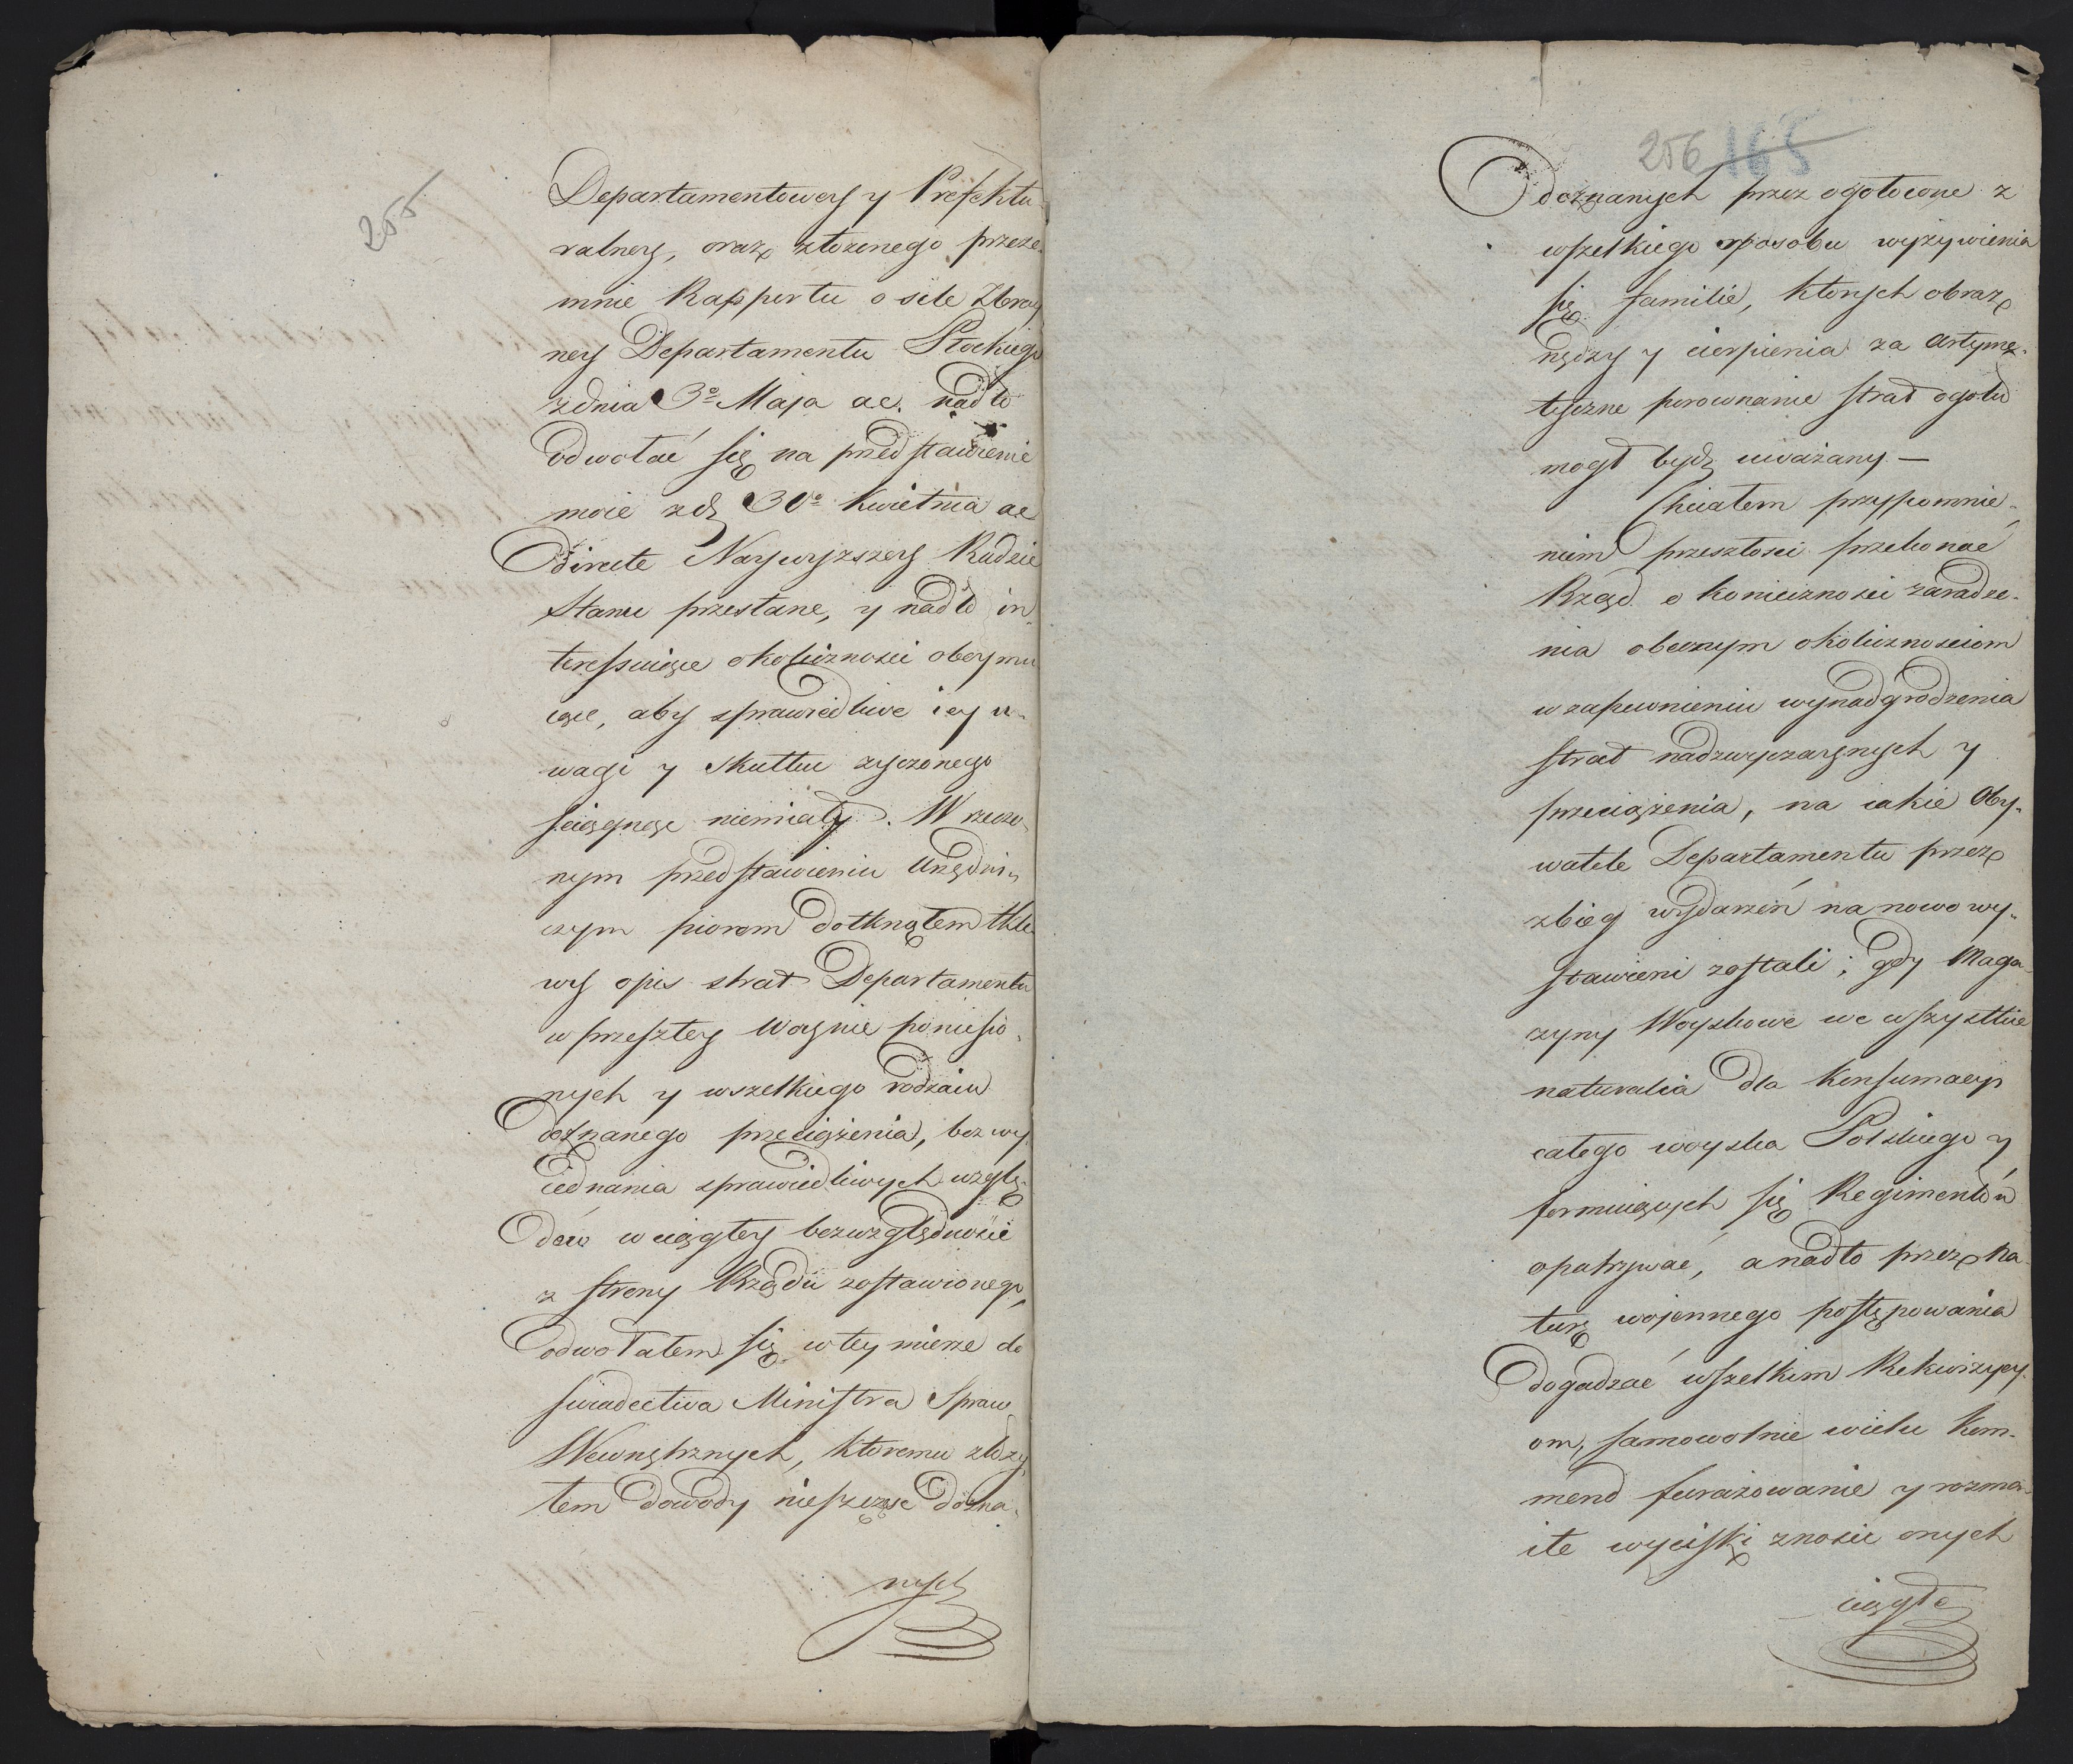 255
Departamentowey y Prefektu-
ralney, oraz złożonego przeze-
mnie Rapportu o sile Zbroy
ney Departamentu Płockiego
z dnia 3º Maja ac. nad to
odwołać się na przedstawienie
moie z d. 30º Kwietnia ac
directe Naywyższey Radzie
Stanu przesłane, y nad to in-
teressuiące okoliczności obeymu
iące, aby sprawiedliwe iey u-
wagi y skutku życzonego
sciągnąć niemiały. W rzeczo-
nym przedstawieniu Urzędni-
czym piorem dotknąłem tkli-
wy opis strat Departamentu
w przeszłey Woynie poniesio-
nych y wszelkiego rodzaiu
doznanego przeciążenia, bez wy
iednania sprawiedliwych wzglę-
dów w ciągłey bezwzględności
z strony Rządu zostawionego,
odwołałem się w tey mierze do
świadectwa Ministra Spraw
Wewnętrznych, któremu złoży-
łem dowody nieszczęść dozna-
nych
256 165
doznanych przez ogołocone z
wszelkiego sposobu wyżywienia
się familie, których obraz
nędzy y cierpienia za Artyme-
tyczne porownanie strat ogołu
mogł bydź uważany. —
Chciałem przypomnie-
niem przeszłości przekonać
Rząd o konieczności zaradze-
nia obecnym okolicznościom
w zapewnieniu wynadgrodzenia
strat nadzwyczaynych y
przeciążenia, na iakie Oby-
watele Departamentu przez
zbieg wydarzeń na nowo wy-
stawieni zostali; gdy Maga-
zyny Woyskowe we wszystkie
naturalia dla Konsumacyi
całego woyska Polskiego y
formuiących się Regimentów
opatrywać, a nadto przez na-
turę wojennego postępowania
dogadzać wszelkim Rekwizycy-
om, samowolnie wielu Kom-
mend furażowanie y rozma-
ite wyciski znosić onych
ciągłe